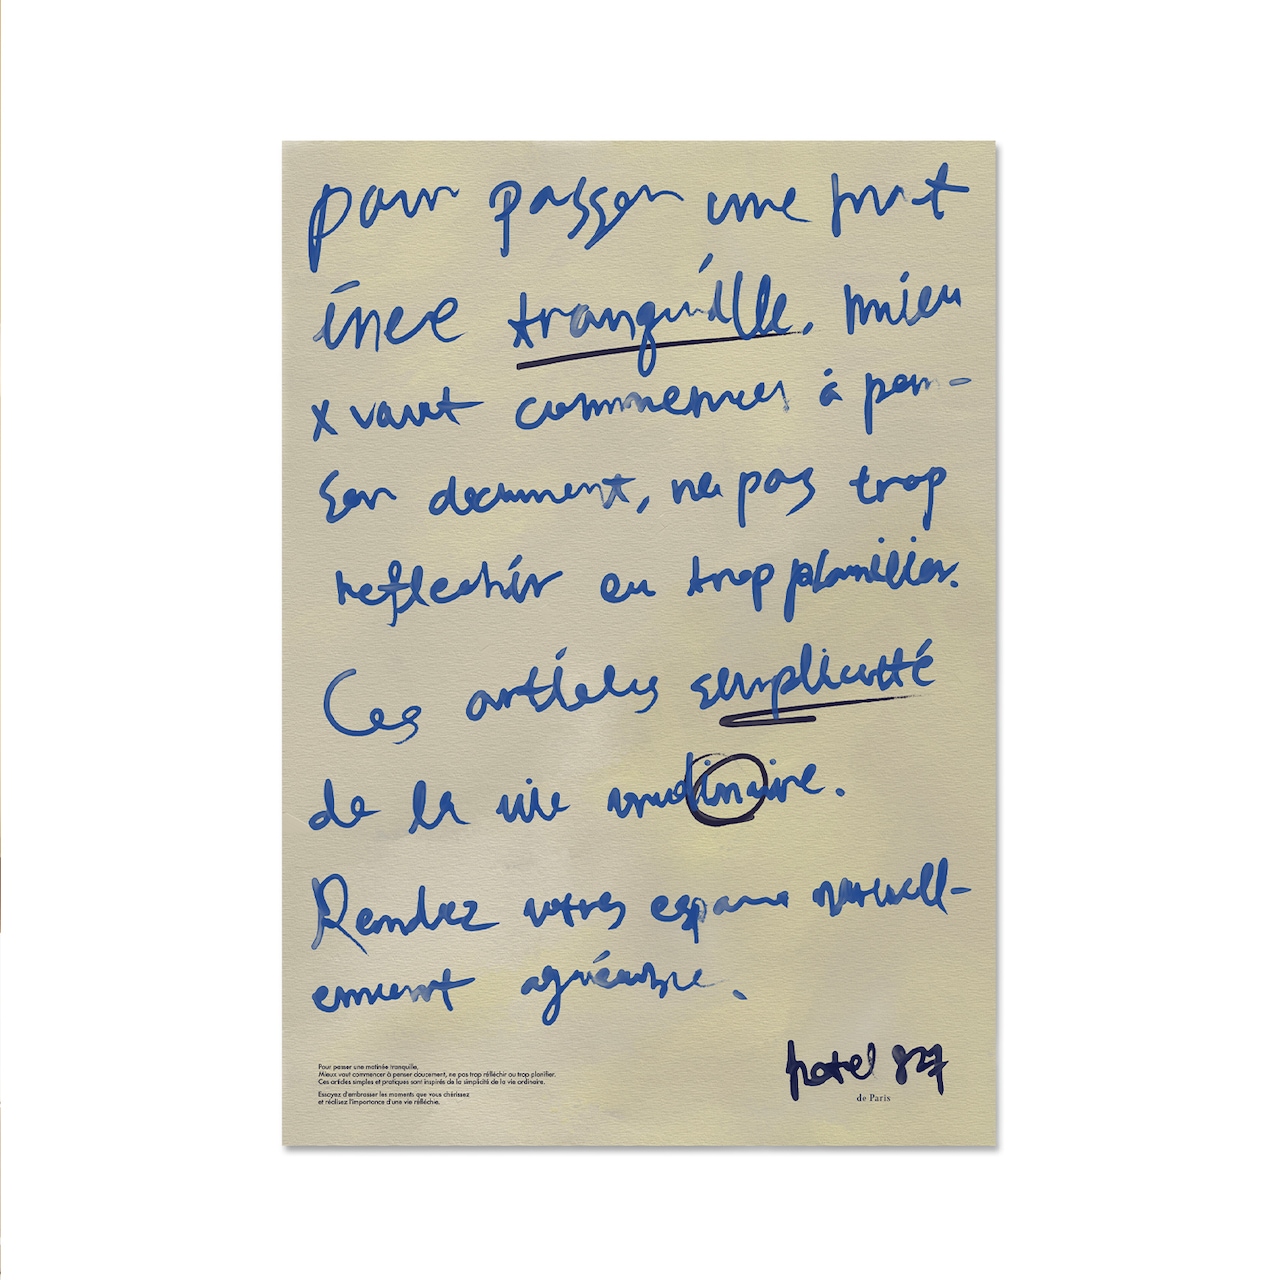 pour passer une mat
inée tranquille, mieu
x vaut commencer à pen-
ser doucement, ne pas trop
reflechir ou trop planifier.
Ces articles simplicité
de la vie ordinaire.
Rendez votres espace
ement agréable.
hotel 827
de Paris
Pour passer une matinée tranquille,
Mieux vaut commencer à penser doucement, ne pas trop réfléchir ou trop planifier.
Ces articles simples et pratiques sont inspirés de la simplicité de la vie ordinaire.
Essayez d'embrasser les moments que vous chérissez
et réalisez l'importance d'une vie réfléchie.